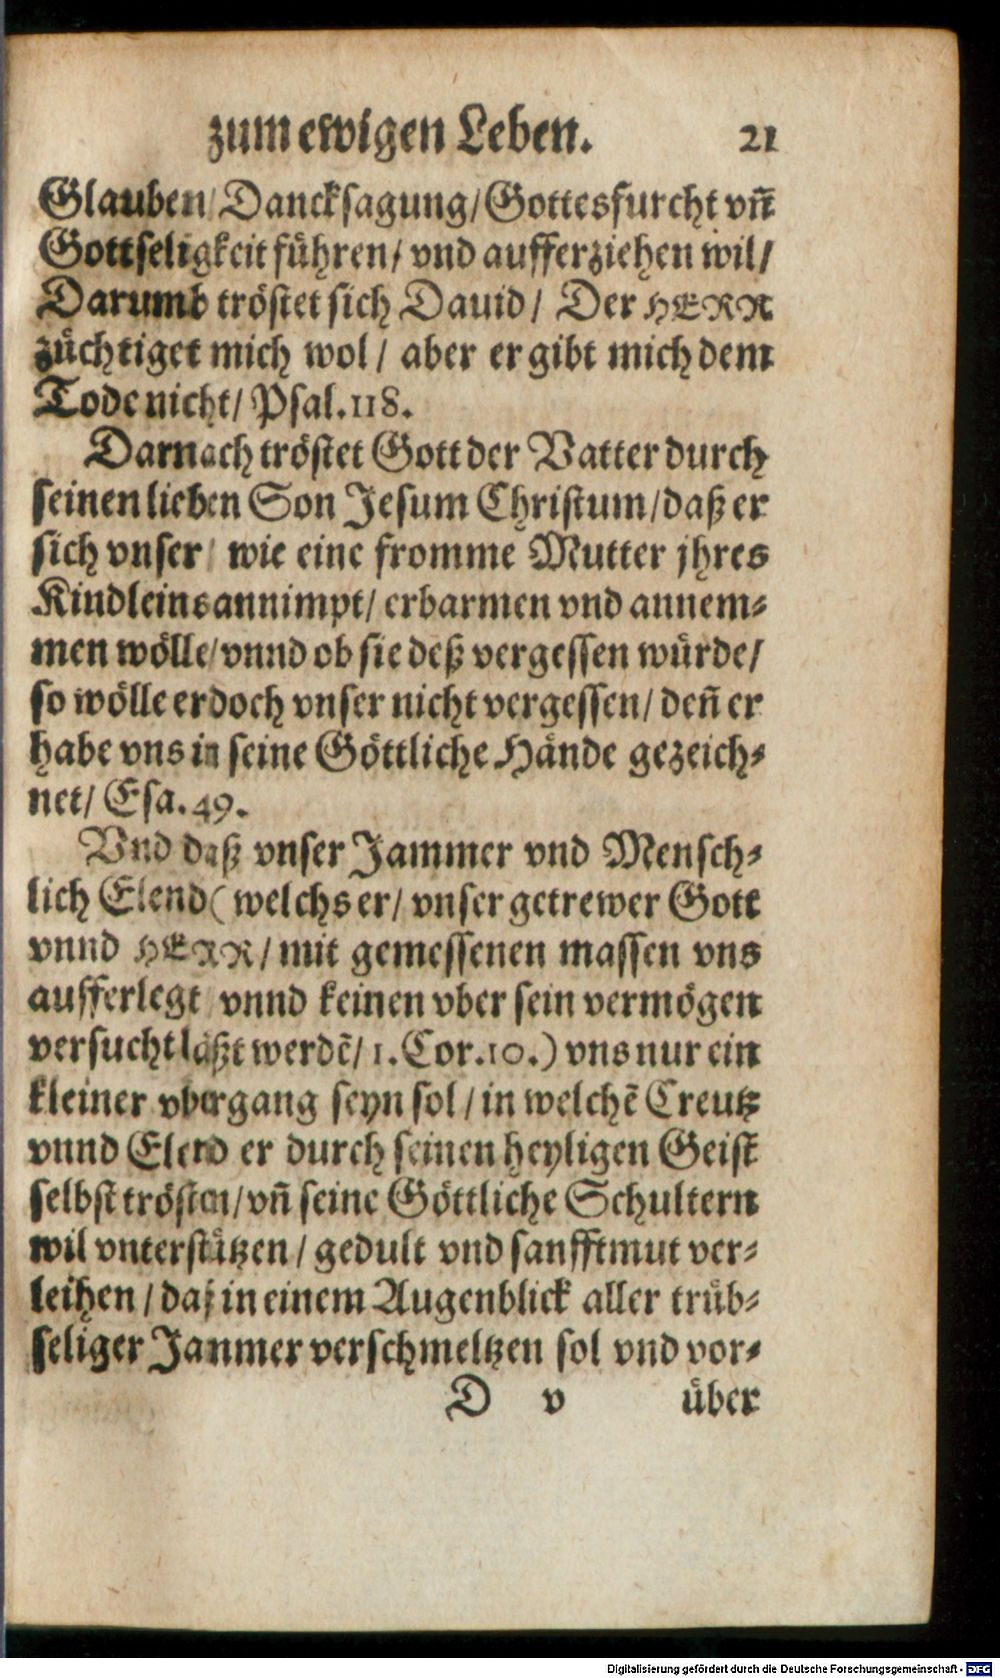 zum ewigen Leben. 21
Glauben/ Dancksagung/ Gottesfurcht vñ
Gottseligkeit führen/ vnd aufferziehen wil/
Darumb tröstet sich Dauid/ Der HERR
züchtiget mich wol/ aber er gibt mich dem
Tode nicht/ Psal. 118.
Darnach tröstet Gott der Vatter durch
seinen lieben Son Jesum Christum/ daß er
sich vnser/ wie eine fromme Mutter jhres
Kindleins annimpt/ erbarmen vnd annem⸗
men wölle/ vnnd ob sie deß vergessen würde/
so wölle er doch vnser nicht vergessen/ deñ er
habe vns in seine Göttliche Hände gezeich⸗
net/ Esa. 49.
Vnd daß vnser Jammer vnd Mensch⸗
lich Elend (welchs er/ vnser getrewer Gott
vnnd HERR/ mit gemessenen massen vns
aufferlegt/ vnnd keinen vber sein vermögen
versucht läßt werdẽ/ 1. Cor. 10.) vns nur ein
kleiner vbergang seyn sol/ in welchẽ Creutz
vnnd Elend er durch seinen heyligen Geist
selbst trösten/ vñ seine Göttliche Schultern
wil vnterstützen/ gedult vnd sanfftmut ver⸗
leihen/ daß in einem Augenblick aller trüb⸗
seliger Jammer verschmeltzen sol vnd vor⸗
D v über
Digitalisierung gefördert durch die Deutsche Forschungsgemeinschaft - DFG